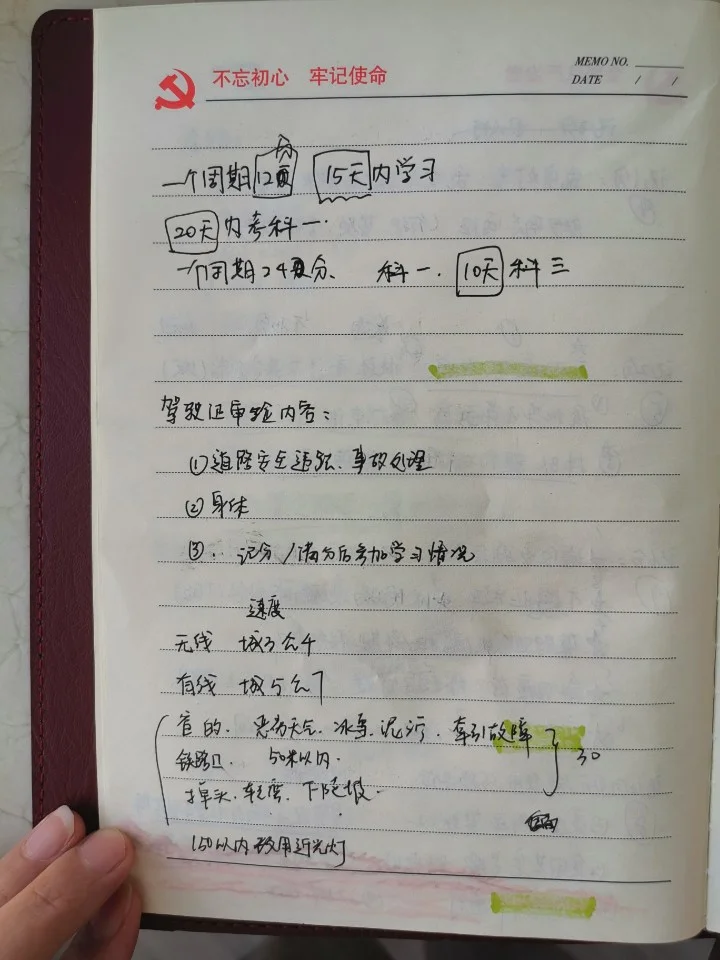 不忘初心 牢记使命
MEMO NO.
DATE / /
一个周期12分 15天内学习
20天内考科一.
一个周期24分、 科一. 10天科三
驾驶证审验内容:
①道路安全违法、事故处理
②身体
③. 记分/满分后参加学习情况
速度
无线 城3公4
有线 城5公7
恶劣天气. 冰雪. 泥泞. 牵引故障
铁路口. 50米以内. 30
掉头. 转弯. 下陡坡.
150以内改用近光灯